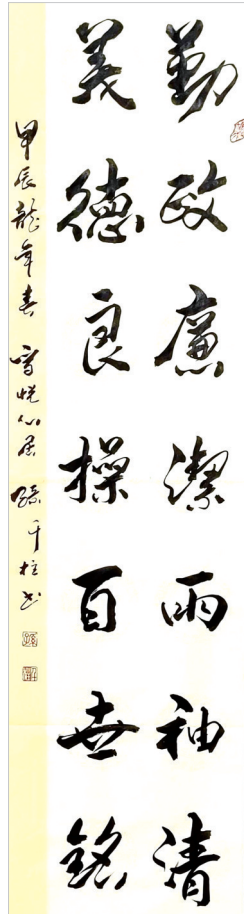 勤政廉潔兩袖清
美德良操百世銘
甲辰龍年春 雪悦心居 柱书